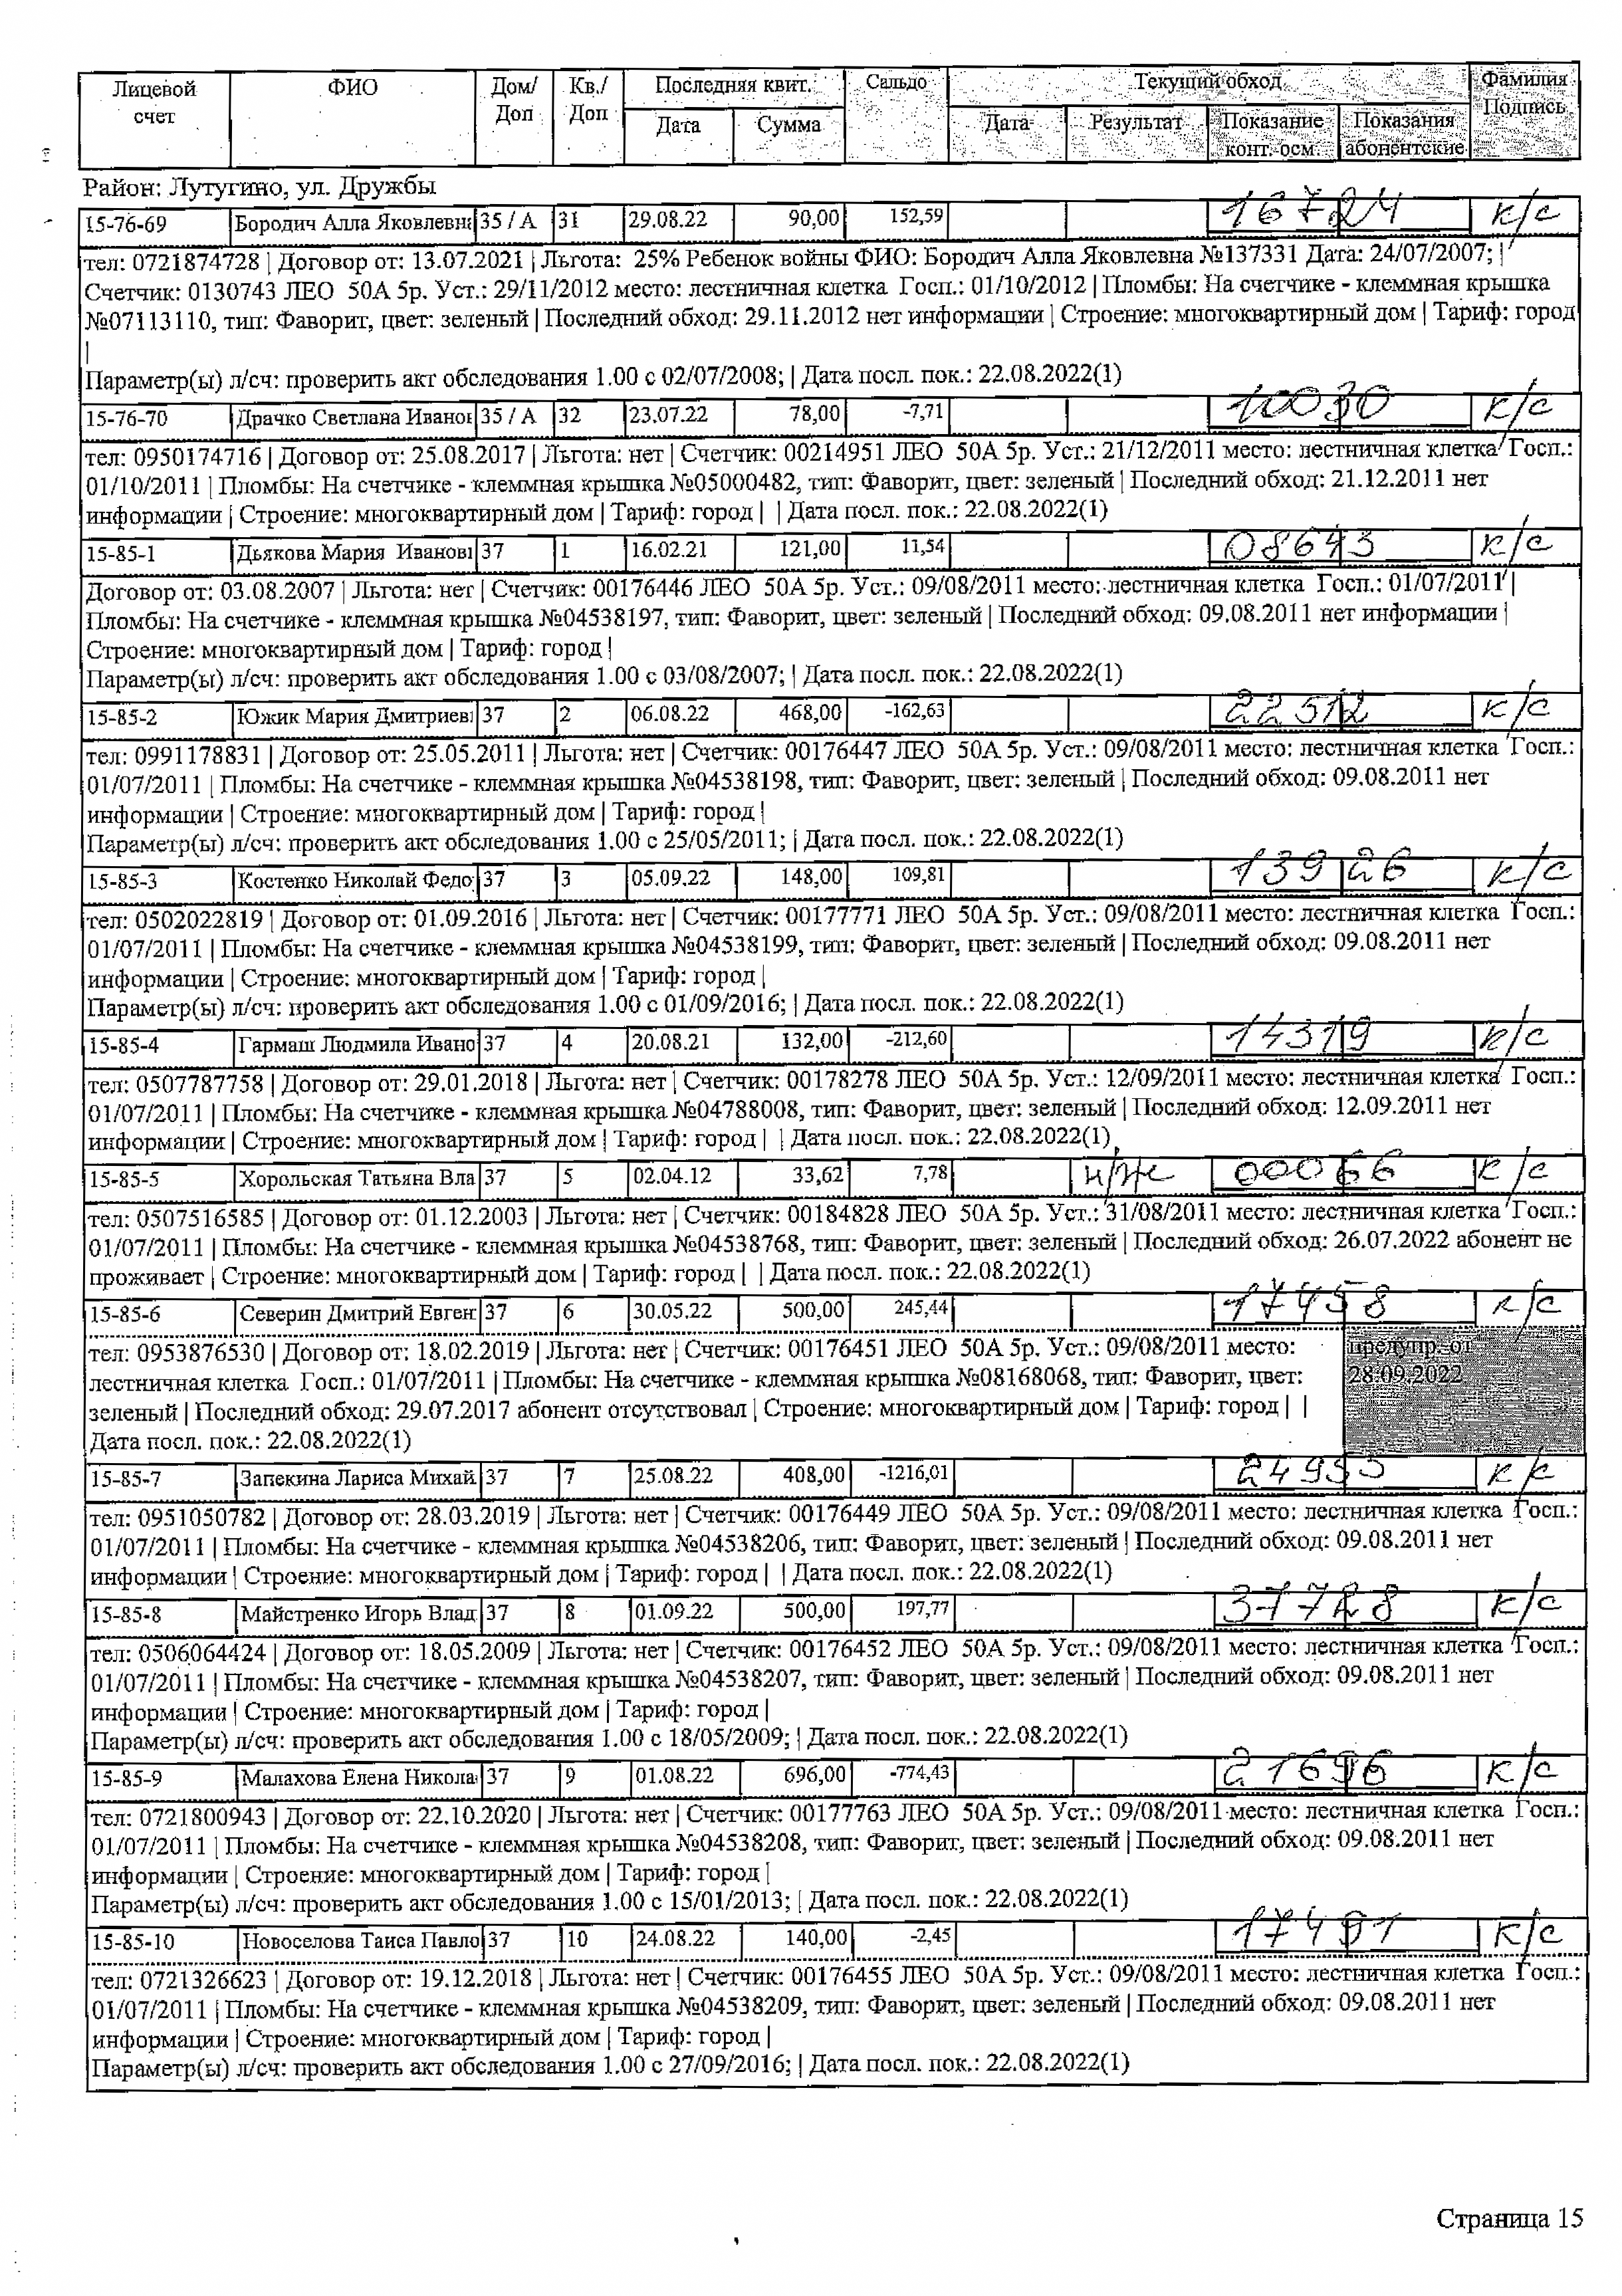 Лицевой счет | ФИО | Дом/ Доп | Кв./ Доп | Последняя квит. | Сальдо | Текущий обход | Фамилия Подпись
Дата | Сумма | Дата | Результат | Показание конт. осм. | Показания абонентские
Район: Лутугино, ул. Дружбы
15-76-69 Бородич Алла Яковлевна 35 / А 31 29.08.22 90,00 152,59 16724 к/с
тел: 0721874728 | Договор от: 13.07.2021 | Льгота: 25% Ребенок войны ФИО: Бородич Алла Яковлевна №137331 Дата: 24/07/2007; |
Счетчик: 0130743 ЛЕО 50А 5р. Уст.: 29/11/2012 место: лестничная клетка Госп.: 01/10/2012 | Пломбы: На счетчике - клеммная крышка
№07113110, тип: Фаворит, цвет: зеленый | Последний обход: 29.11.2012 нет информации | Строение: многоквартирный дом | Тариф: город
|
Параметр(ы) л/сч: проверить акт обследования 1.00 с 02/07/2008; | Дата посл. пок.: 22.08.2022(1)
15-76-70 Драчко Светлана Иванов 35 / А 32 23.07.22 78,00 -7,71 10030 к/с
тел: 0950174716 | Договор от: 25.08.2017 | Льгота: нет | Счетчик: 00214951 ЛЕО 50А 5р. Уст.: 21/12/2011 место: лестничная клетка Госп.:
01/10/2011 | Пломбы: На счетчике - клеммная крышка №05000482, тип: Фаворит, цвет: зеленый | Последний обход: 21.12.2011 нет
информации | Строение: многоквартирный дом | Тариф: город | | Дата посл. пок.: 22.08.2022(1)
15-85-1 Дьякова Мария Иванові 37 1 16.02.21 121,00 11,54 08643 к/с
Договор от: 03.08.2007 | Льгота: нет | Счетчик: 00176446 ЛЕО 50А 5р. Уст.: 09/08/2011 место: лестничная клетка Госп.: 01/07/2011 |
Пломбы: На счетчике - клеммная крышка №04538197, тип: Фаворит, цвет: зеленый | Последний обход: 09.08.2011 нет информации |
Строение: многоквартирный дом | Тариф: город |
Параметр(ы) л/сч: проверить акт обследования 1.00 с 03/08/2007; | Дата посл. пок.: 22.08.2022(1)
15-85-2 Южик Мария Дмитриев 37 2 06.08.22 468,00 -162,63 22512 к/с
тел: 0991178831 | Договор от: 25.05.2011 | Льгота: нет | Счетчик: 00176447 ЛЕО 50А 5р. Уст.: 09/08/2011 место: лестничная клетка Госп.:
01/07/2011 | Пломбы: На счетчике - клеммная крышка №04538198, тип: Фаворит, цвет: зеленый | Последний обход: 09.08.2011 нет
информации | Строение: многоквартирный дом | Тариф: город |
Параметр(ы) л/сч: проверить акт обследования 1.00 с 25/05/2011; | Дата посл. пок.: 22.08.2022(1)
15-85-3 Костенко Николай Федо 37 3 05.09.22 148,00 109,81 13926 к/с
тел: 0502022819 | Договор от: 01.09.2016 | Льгота: нет | Счетчик: 00177771 ЛЕО 50А 5р. Уст.: 09/08/2011 место: лестничная клетка Госп.:
01/07/2011 | Пломбы: На счетчике - клеммная крышка №04538199, тип: Фаворит, цвет: зеленый | Последний обход: 09.08.2011 нет
информации | Строение: многоквартирный дом | Тариф: город |
Параметр(ы) л/сч: проверить акт обследования 1.00 с 01/09/2016; | Дата посл. пок.: 22.08.2022(1)
15-85-4 Гармаш Людмила Ивано 37 4 20.08.21 132,00 -212,60 14319 к/с
тел: 0507787758 | Договор от: 29.01.2018 | Льгота: нет | Счетчик: 00178278 ЛЕО 50А 5р. Уст.: 12/09/2011 место: лестничная клетка Госп.:
01/07/2011 | Пломбы: На счетчике - клеммная крышка №04788008, тип: Фаворит, цвет: зеленый | Последний обход: 12.09.2011 нет
информации | Строение: многоквартирный дом | Тариф: город | | Дата посл. пок.: 22.08.2022(1)
15-85-5 Хорольская Татьяна Вла 37 5 02.04.12 33,62 7,78 н/ж 00066 к/с
тел: 0507516585 | Договор от: 01.12.2003 | Льгота: нет | Счетчик: 00184828 ЛЕО 50А 5р. Уст.: 31/08/2011 место: лестничная клетка Госп.:
01/07/2011 | Пломбы: На счетчике - клеммная крышка №04538768, тип: Фаворит, цвет: зеленый | Последний обход: 26.07.2022 абонент не
проживает | Строение: многоквартирный дом | Тариф: город | | Дата посл. пок.: 22.08.2022(1)
15-85-6 Северин Дмитрий Евген 37 6 30.05.22 500,00 245,44 17458 к/с
тел: 0953876530 | Договор от: 18.02.2019 | Льгота: нет | Счетчик: 00176451 ЛЕО 50А 5р. Уст.: 09/08/2011 место: предупр. от
лестничная клетка Госп.: 01/07/2011 | Пломбы: На счетчике - клеммная крышка №08168068, тип: Фаворит, цвет: 28.09.2022
зеленый | Последний обход: 29.07.2017 абонент отсутствовал | Строение: многоквартирный дом | Тариф: город | |
Дата посл. пок.: 22.08.2022(1)
15-85-7 Запекина Лариса Михай 37 7 25.08.22 408,00 -1216,01 к/с
тел: 0951050782 | Договор от: 28.03.2019 | Льгота: нет | Счетчик: 00176449 ЛЕО 50А 5р. Уст.: 09/08/2011 место: лестничная клетка Госп.:
01/07/2011 | Пломбы: На счетчике - клеммная крышка №04538206, тип: Фаворит, цвет: зеленый | Последний обход: 09.08.2011 нет
информации | Строение: многоквартирный дом | Тариф: город | | Дата посл. пок.: 22.08.2022(1)
15-85-8 Майстренко Игорь Влад 37 8 01.09.22 500,00 197,77 37728 к/с
тел: 0506064424 | Договор от: 18.05.2009 | Льгота: нет | Счетчик: 00176452 ЛЕО 50А 5р. Уст.: 09/08/2011 место: лестничная клетка Госп.:
01/07/2011 | Пломбы: На счетчике - клеммная крышка №04538207, тип: Фаворит, цвет: зеленый | Последний обход: 09.08.2011 нет
информации | Строение: многоквартирный дом | Тариф: город |
Параметр(ы) л/сч: проверить акт обследования 1.00 с 18/05/2009; | Дата посл. пок.: 22.08.2022(1)
15-85-9 Малахова Елена Никола 37 9 01.08.22 696,00 -774,43 21696 к/с
тел: 0721800943 | Договор от: 22.10.2020 | Льгота: нет | Счетчик: 00177763 ЛЕО 50А 5р. Уст.: 09/08/2011 место: лестничная клетка Госп.:
01/07/2011 | Пломбы: На счетчике - клеммная крышка №04538208, тип: Фаворит, цвет: зеленый | Последний обход: 09.08.2011 нет
информации | Строение: многоквартирный дом | Тариф: город |
Параметр(ы) л/сч: проверить акт обследования 1.00 с 15/01/2013; | Дата посл. пок.: 22.08.2022(1)
15-85-10 Новоселова Таиса Павло 37 10 24.08.22 140,00 -2,45 17491 к/с
тел: 0721326623 | Договор от: 19.12.2018 | Льгота: нет | Счетчик: 00176455 ЛЕО 50А 5р. Уст.: 09/08/2011 место: лестничная клетка Госп.:
01/07/2011 | Пломбы: На счетчике - клеммная крышка №04538209, тип: Фаворит, цвет: зеленый | Последний обход: 09.08.2011 нет
информации | Строение: многоквартирный дом | Тариф: город |
Параметр(ы) л/сч: проверить акт обследования 1.00 с 27/09/2016; | Дата посл. пок.: 22.08.2022(1)
Страница 15